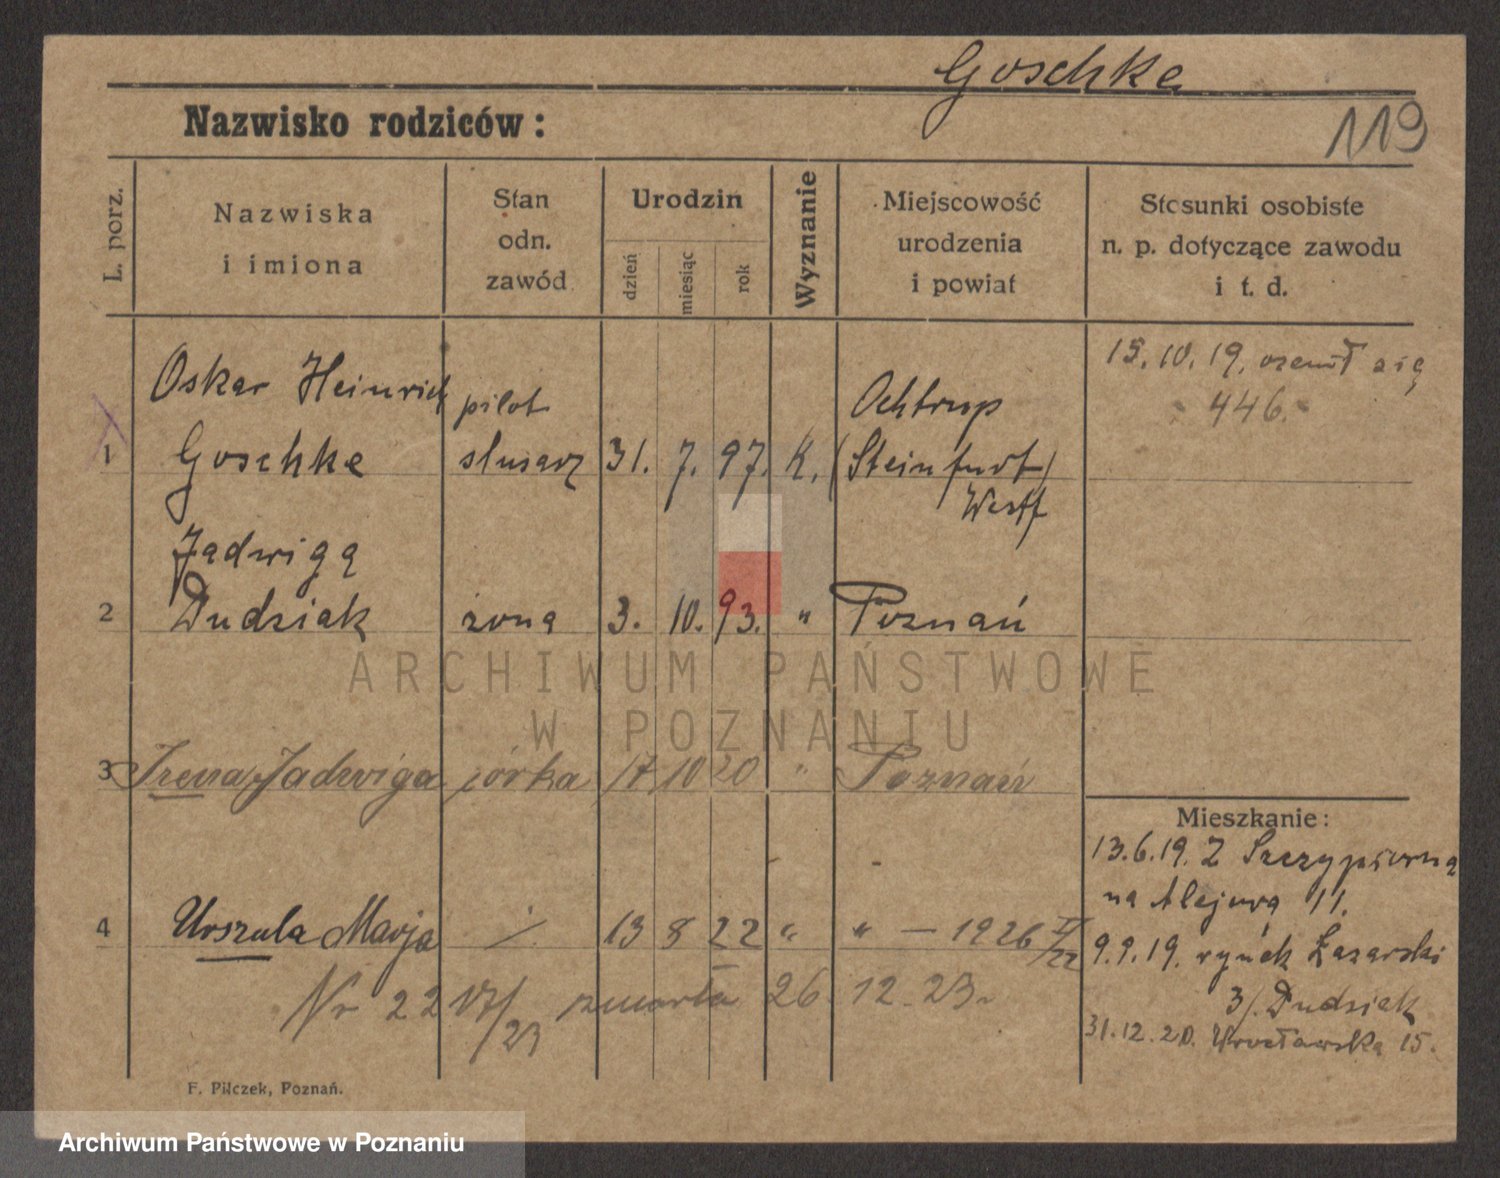 Goschke
119
Nazwisko rodziców:
L. porz.
Nazwiska
i imiona
Stan
odn.
zawód
Urodzin
dzień
miesiąc
rok
Wyznanie
Miejscowość
urodzenia
i powiat
Stosunki osobiste
n. p. dotyczące zawodu
i t. d.
Oskar Heinrich pilot Ochtrup
1 Goschke slusarz 31. 7. 97. K. (Steinfurt)
Westf
15.10.19. ożenił się
446.
Jadwiga
2 Dudziak żona 3. 10. 93. " Poznań
ARCHIWUM PAŃSTWOWE
W POZNANIU
3 Irena Jadwiga córka 17 10 20 " Poznań
4 Urszula Marja 13 8 22 " " — 1926
Nr 22 zmarła 26. 12. 23.
Mieszkanie:
13.6.19. Z Szczypiorna
na Alejową 11.
9.9.19. rynek Łazarski
3/. Dudziak
31.12.20. Wrocławska 15.
F. Pilczek, Poznań.
Archiwum Państwowe w Poznaniu